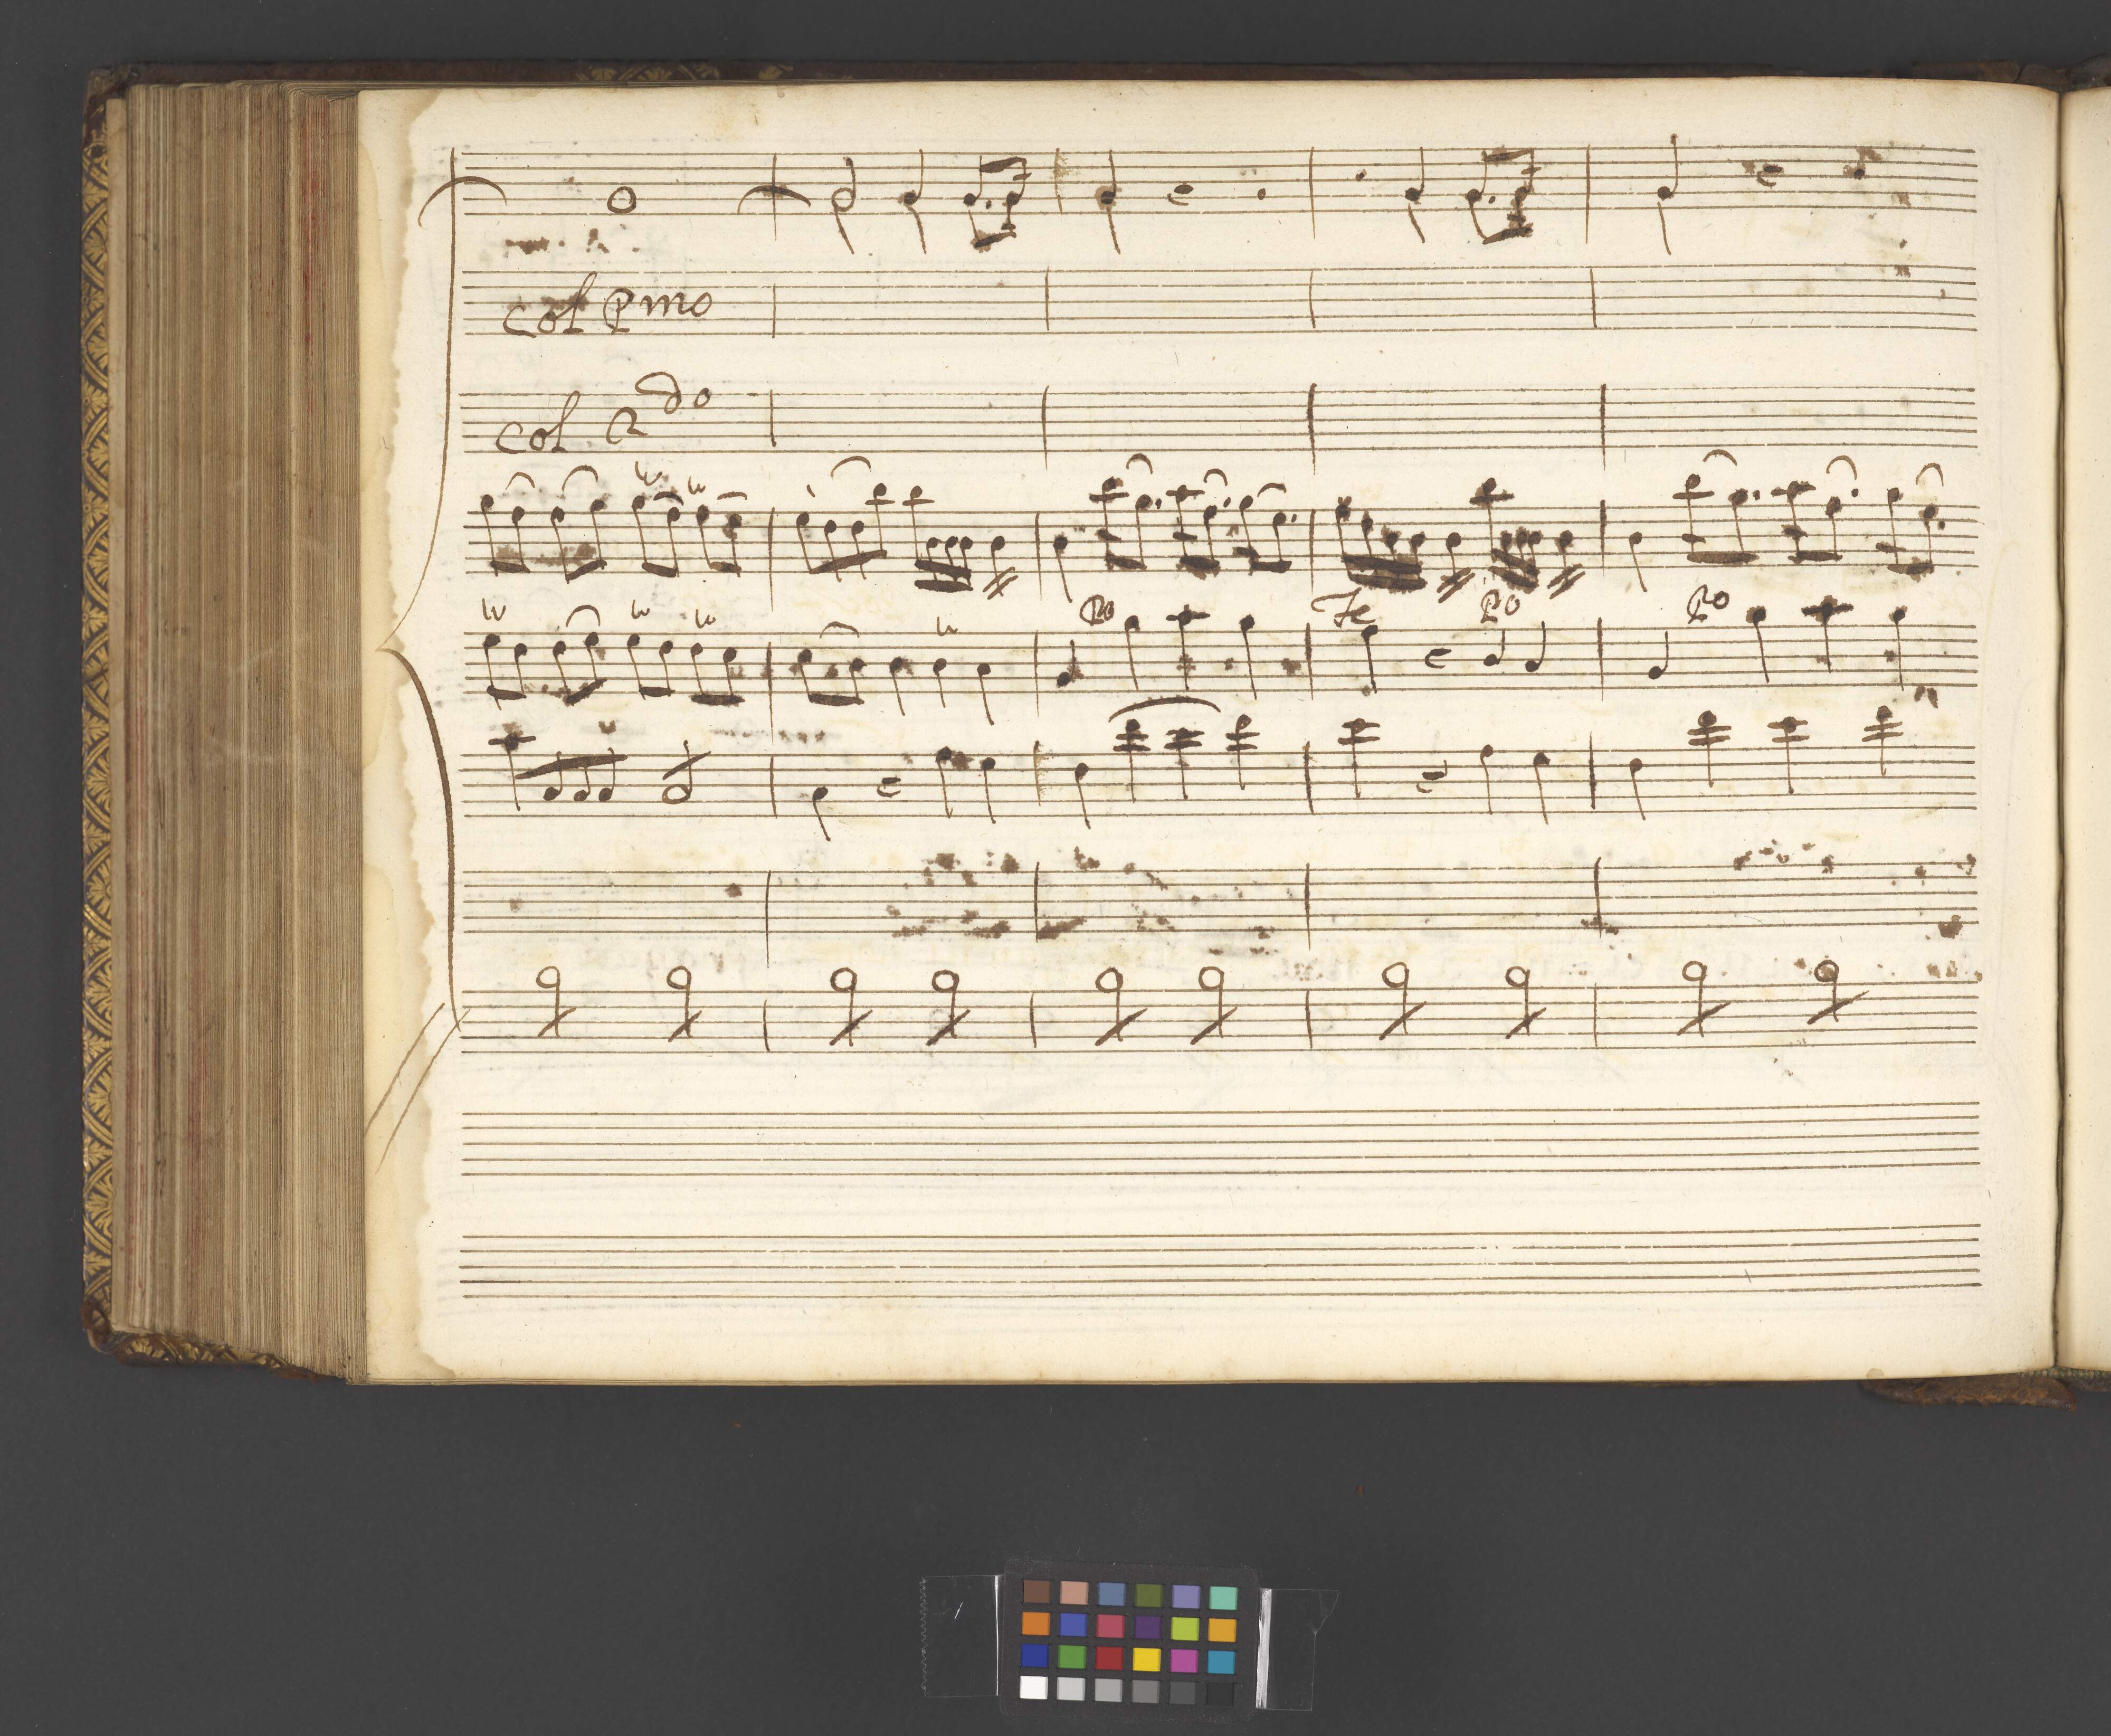 Col Pmo
Col 2do
Po Fe Po Po